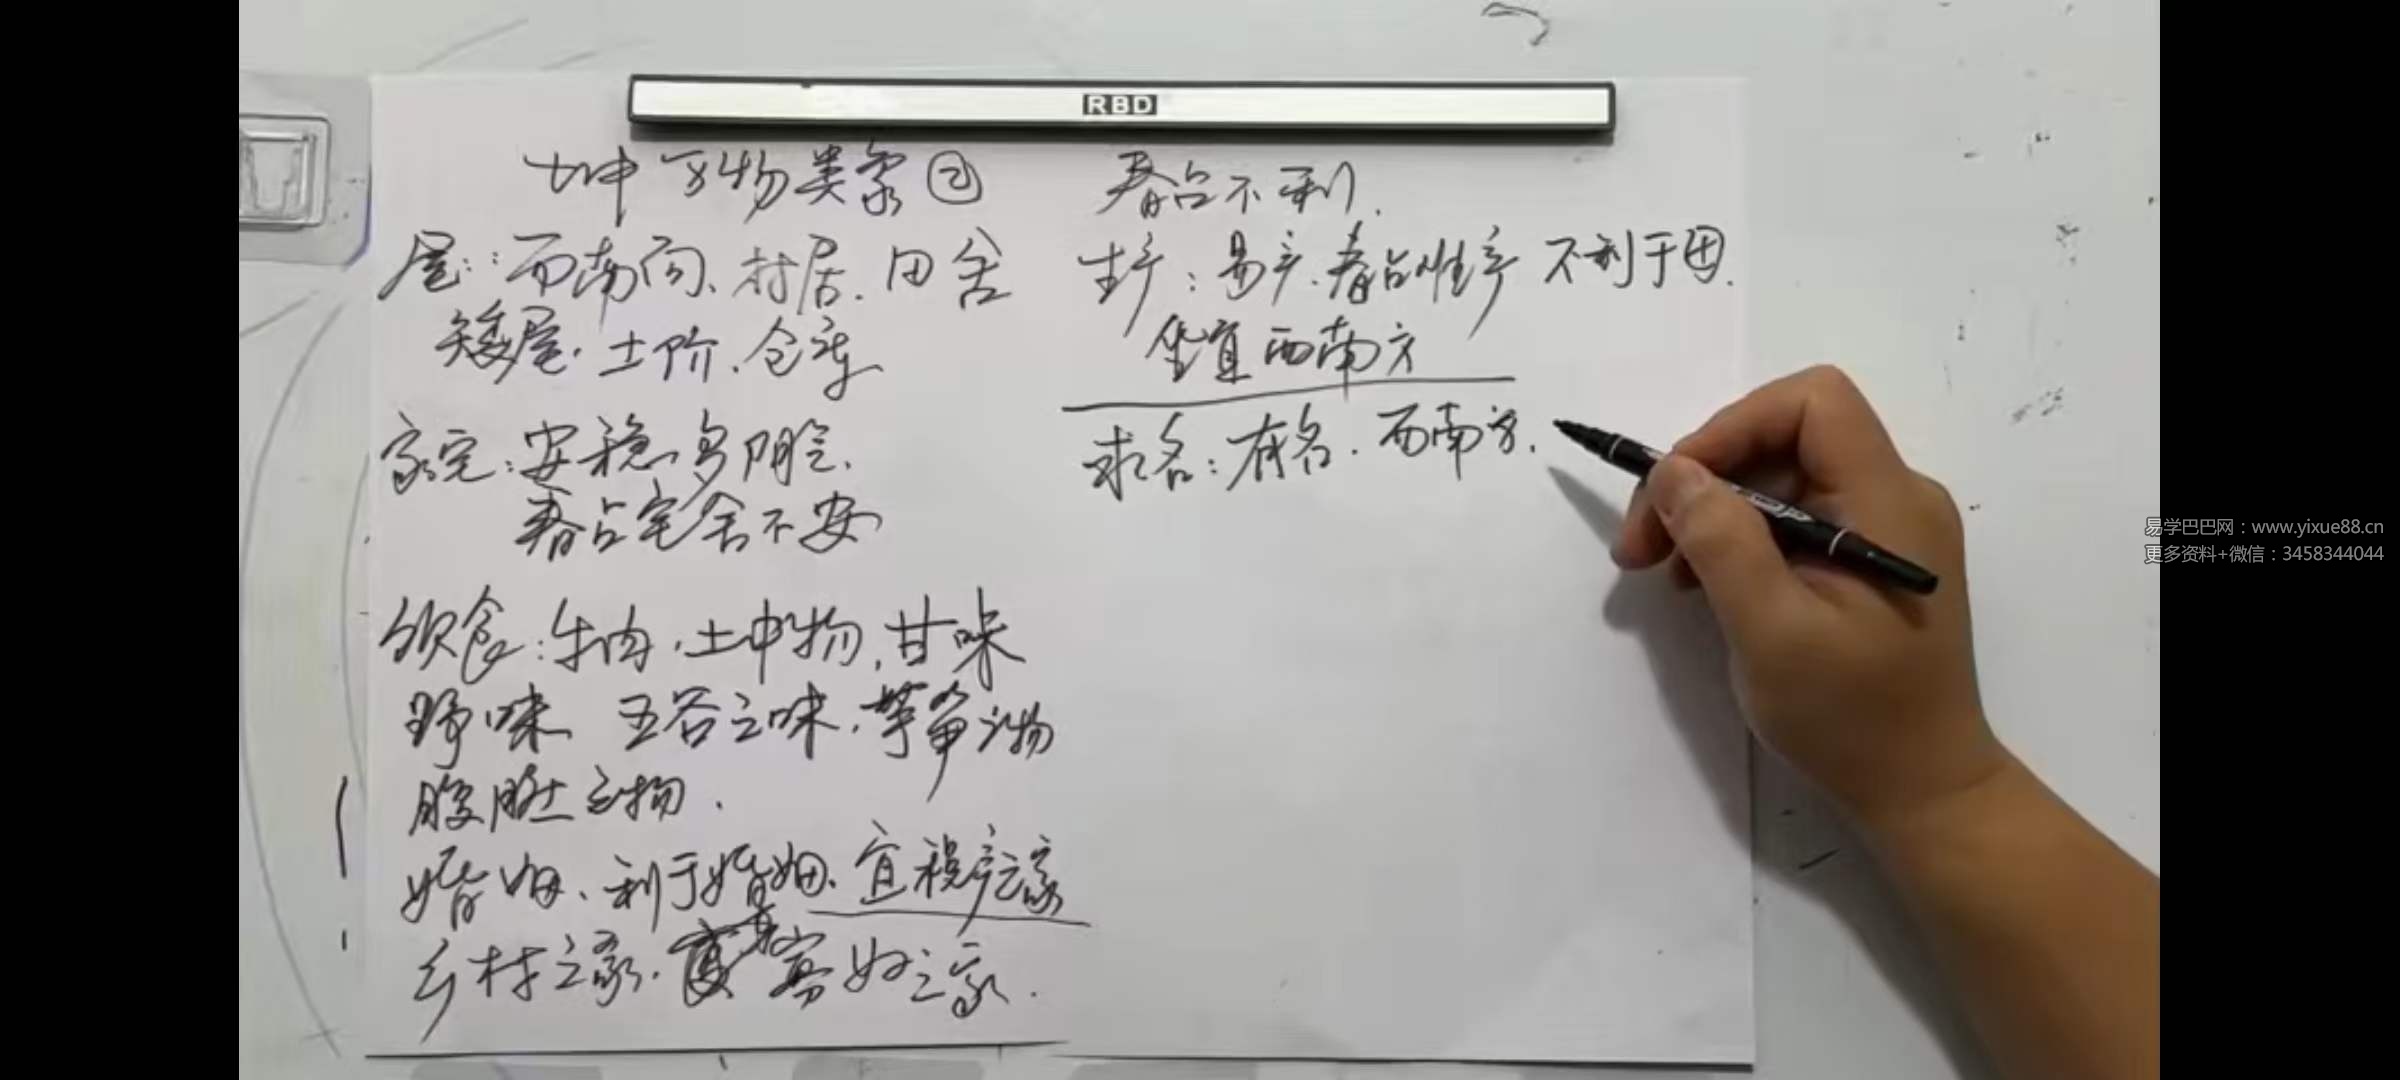 RBD
坤万物类象②
屋：西南向、村居、田舍
矮屋、土阶、仓库
家宅：安稳、多阴气、
春占宅舍不安
饮食：牛肉、土中物、甘味
野味 五谷之味、芋笋之物
腹脏之物.
婚姻、利于婚姻、宜税产之家
乡村之家. 寡妇之家.
春占不利.
生产：易产、春占难产 不利于母.
坐宜西南方
求名：有名. 西南方.
易学巴巴网：www.yixue88.cn
更多资料+微信：3458344044